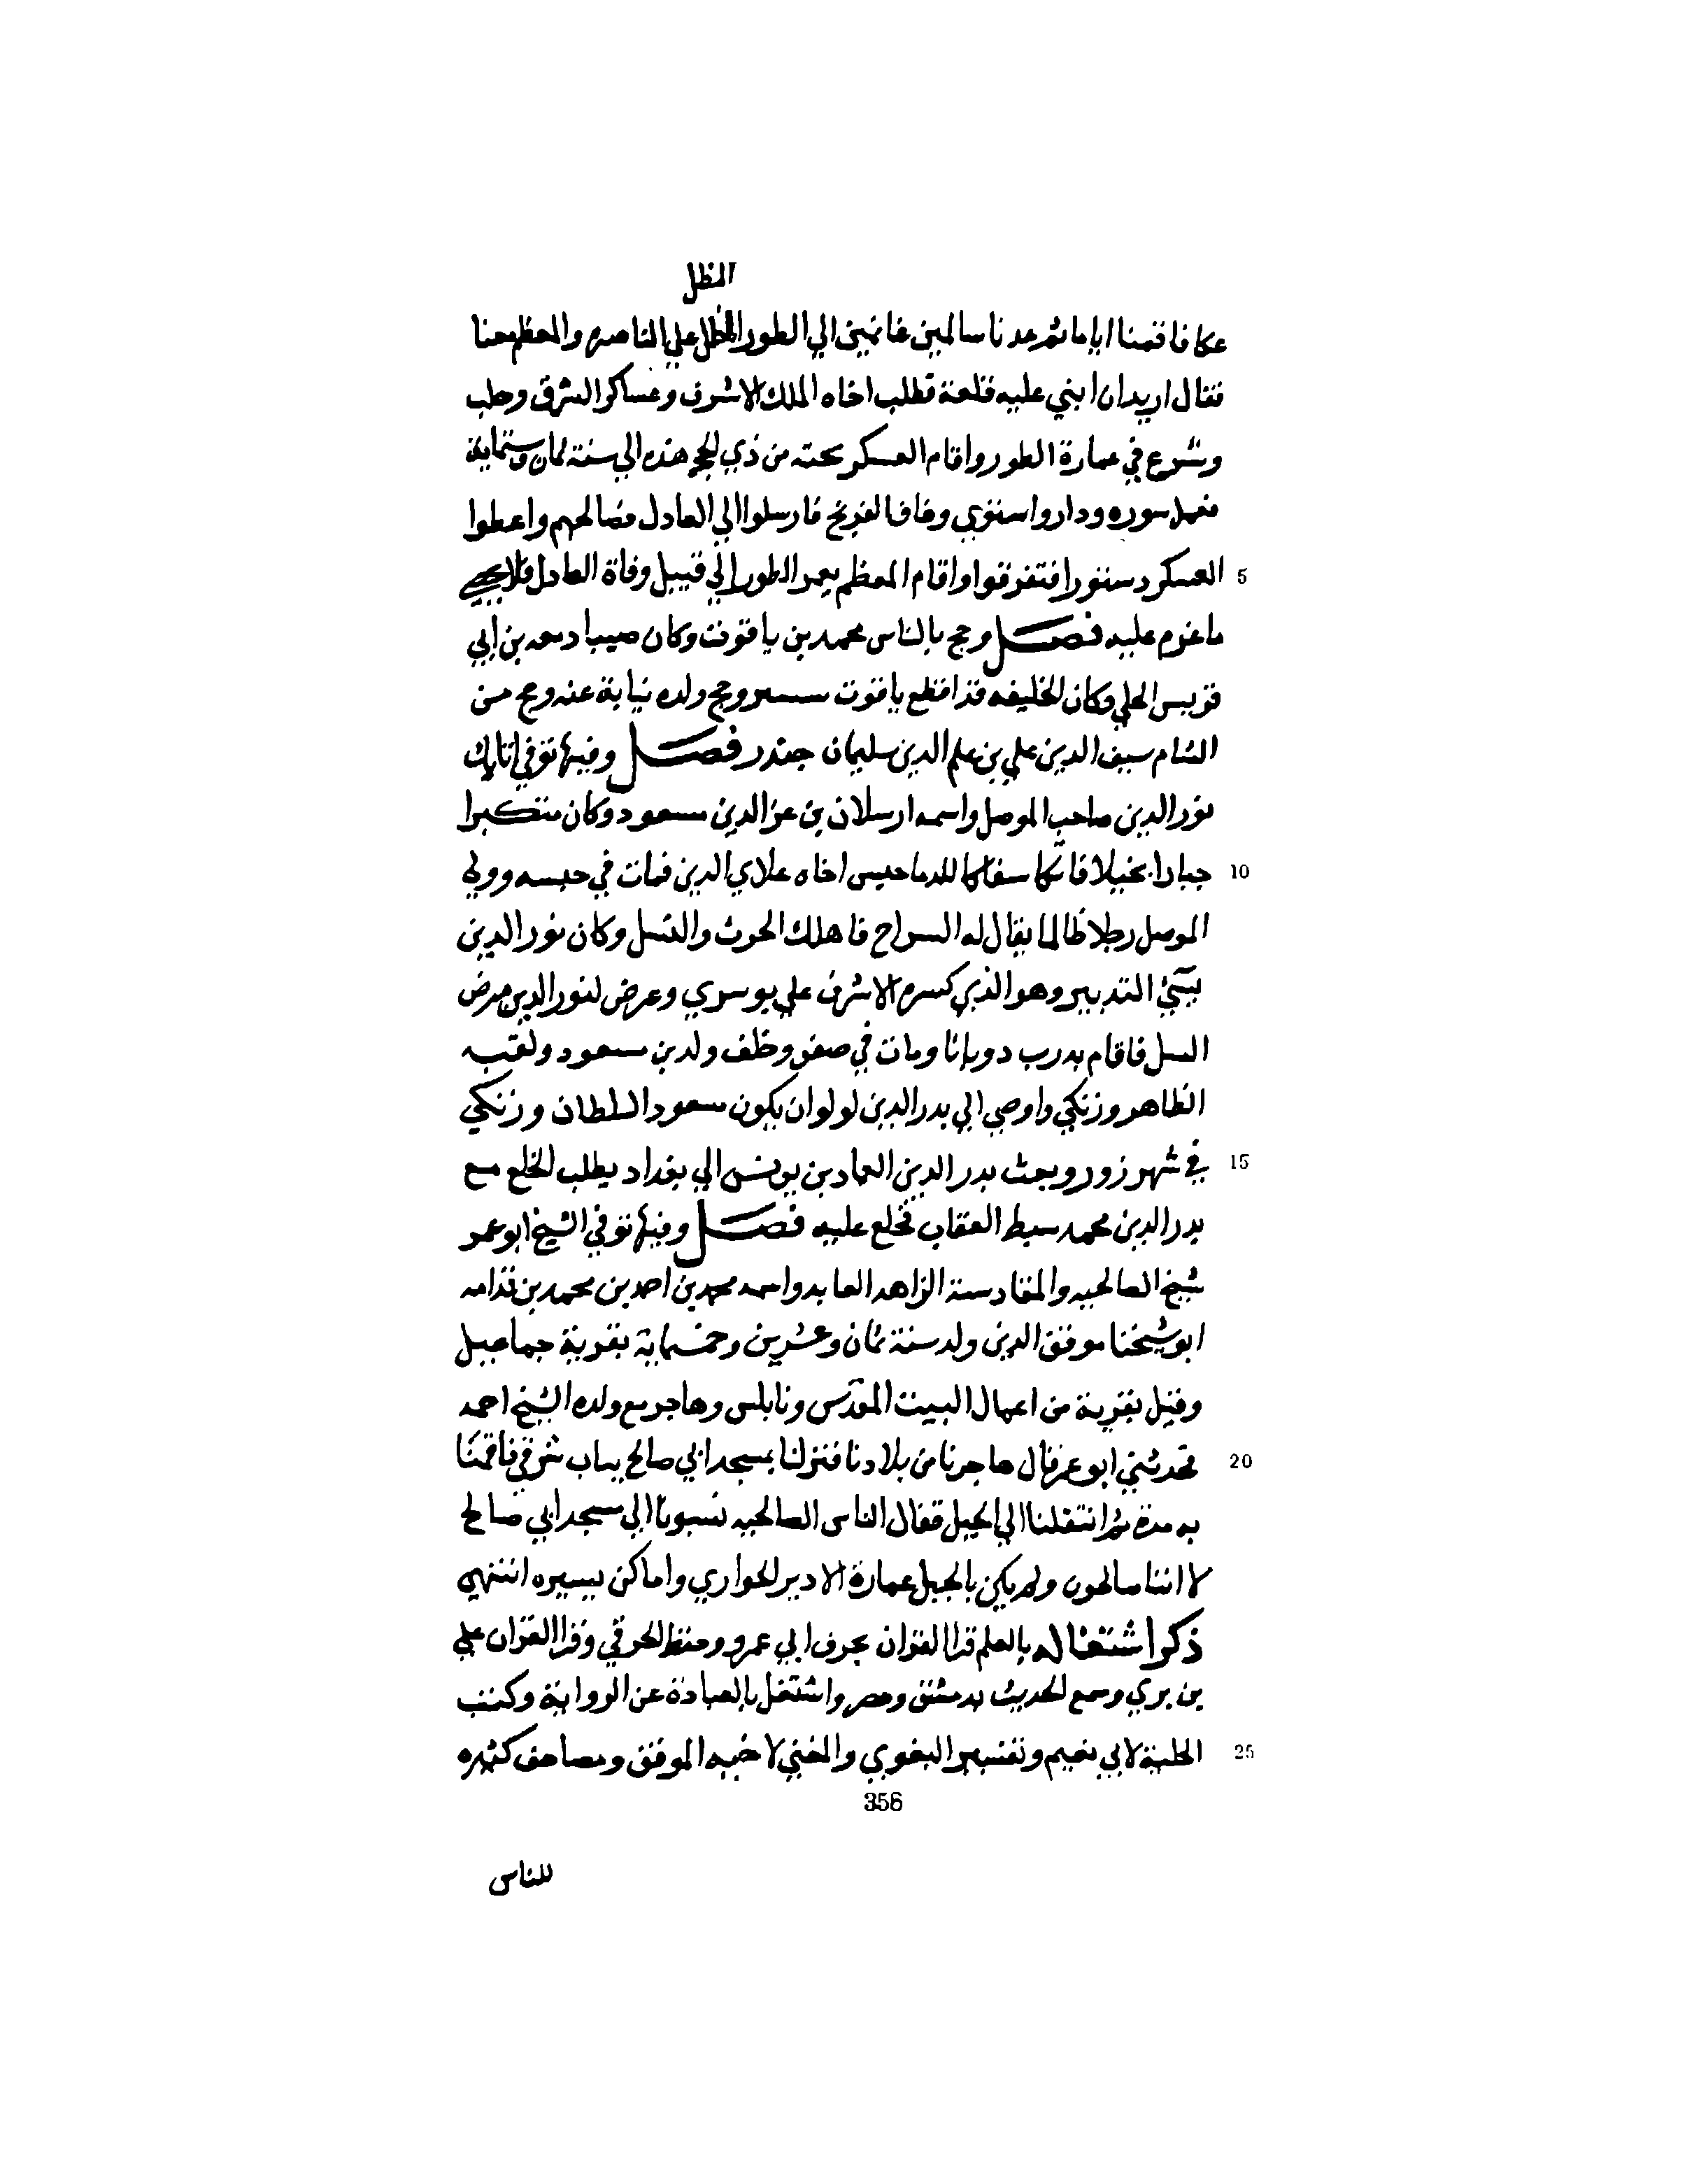 المظل
عكا فاقمنا اياما ثم عدنا سالمين غانمين الي الطور المطل علي الناصره والمعظم معنا
فقال اريد ان ابني عليه قلعة فطلب اخاه الملك الاشرف وعساكر الشرق وحلب
وشرع في عمارة الطور واقام العسكر تحته من ذي الحجه هذه الي سنة ثمان وستماية
فعمل سوره ودار واستوي وخاف الفرنج فارسلوا الي العادل فصالحهم واعطوا
5 العسكر دستورا فتفرقوا واقام المعظم يعمر الطور الي قبيل وفاة العادل فلا
ما غرم عليه فصل وحج بالناس محمد بن ياقوت وكان صبيا ومعه بن ابي
الحلي وكان الخليفه قد اقطع ياقوت وحج ولده نيابة عنه وحج من
الشام سيف الدين علي بن علم الدين سليمان جندر فصل وفيها توفي اتابك
نور الدين صاحب الموصل واسمه ارسلان بن عز الدين مسعود وكان متكبرا
10 جبارا بخيلا فاتكا سفاكا للدما حبس اخاه علاي الدين فمات في حبسه وولي
الموصل رجلا ظالما يقال له السراج فاهلك الحرث والنسل وكان نور الدين
سيئ التدبير وهو الذي كسره الاشرف علي بوسري وعرض لنور الدين مرض
السل فاقام بدرب دوبانا ومات في صفر وخلف ولدين مسعود ولقبه
الظاهر وزنكي واوصي الي بدر الدين لولو ان يكون مسعود السلطان وزنكي
15 في شهر زور وبعث بدر الدين العماد بن يونس الي بغداد يطلب الخلع مع
بدر الدين محمد سبط العقاب فخلع عليه فصل وفيها توفي الشيخ ابو عمر
شيخ الصالحيه والمقادسة الزاهد العابد واسمه محمد بن احمد بن محمد بن قدامه
ابو شيخنا موفق الدين ولد سنة ثمان وعشرين وخمسماية بقرية جماعيل
وقيل بقرية من اعمال البيت المقدس ونابلس وهاجر مع ولده الشيخ احمد
20 فحدثني ابو عمر قال هاجرنا من بلادنا فنزلنا بمسجد ابي صالح بباب شرقي فاقمنا
به مدة ثم انتقلنا الي الجبل فقال الناس الصالحيه نسبونا الي مسجد ابي صالح
لا اننا صالحون ولم يكن بالجبل عمارة الا دير الحواري واماكن يسيره انتهي
ذكر اشتغاله بالعلم قرا القران بحرف ابي عمرو وحفظ الخرقي وقرا القران علي
بن بري وسمع الحديث بدمشق ومصر واشتغل بالعبادة عن الرواية وكتب
25 الحلية لابي نعيم وتفسير البغوي والمغني لاخيه الموفق ومصاحف كثيره
356
للناس